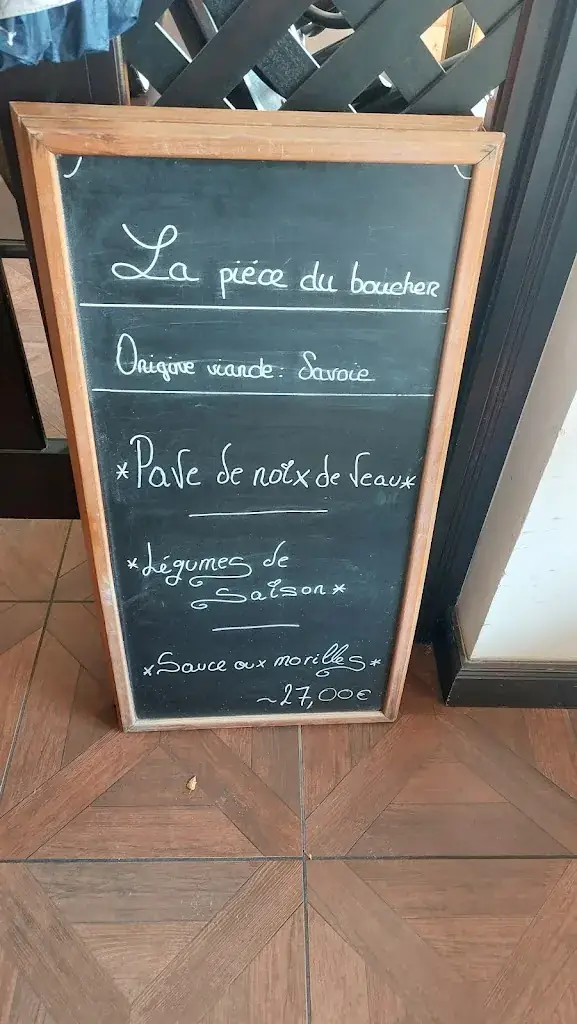 La piéce du boucher
Origine viande: Savoie
*Pavé de noix de Veau*
*Légumes de
Saison*
*Sauce aux morilles*
~27,00€